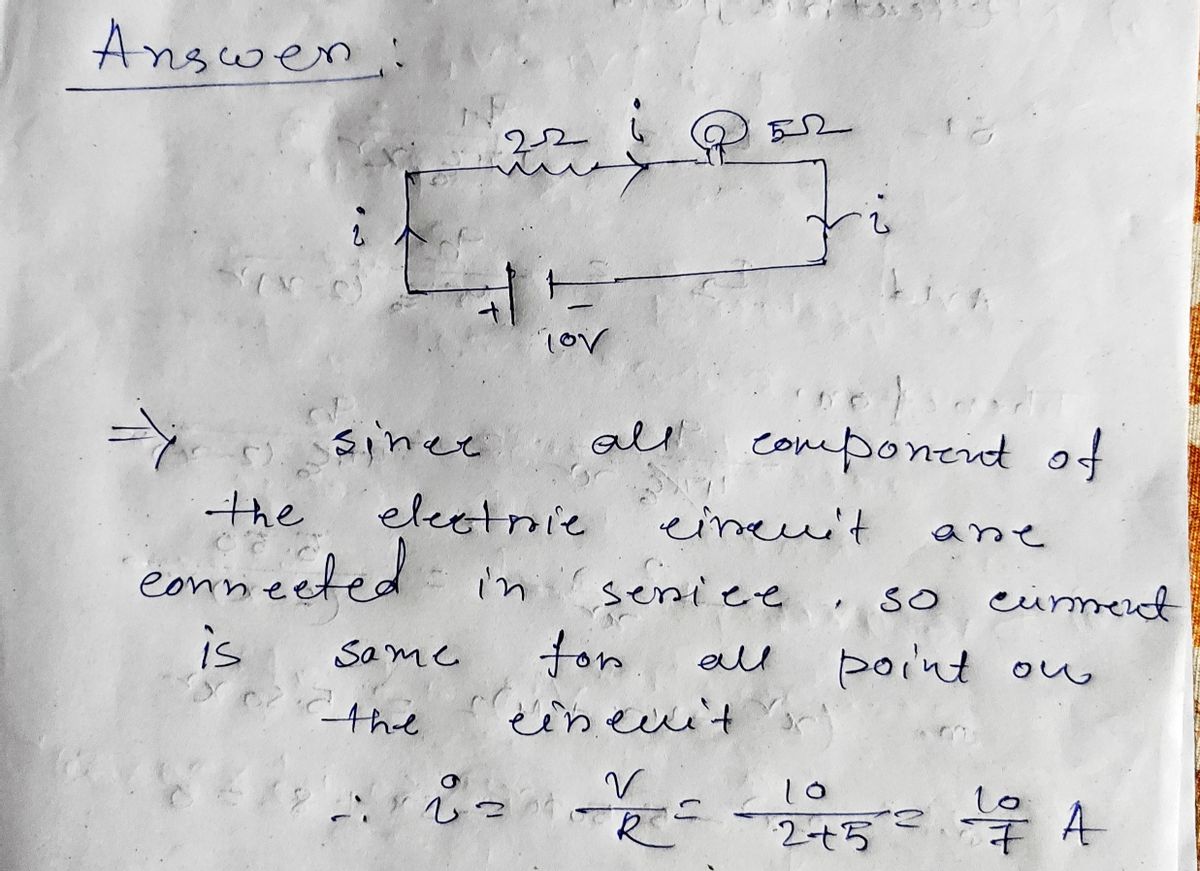 Answer :
2Ω i 5Ω
i i
+ -
10V
⇒ since all component of
the electric circuit are
connected in series, so current
is same for all point on
the circuit
∴ i = V/R = 10/2+5 = 10/7 A